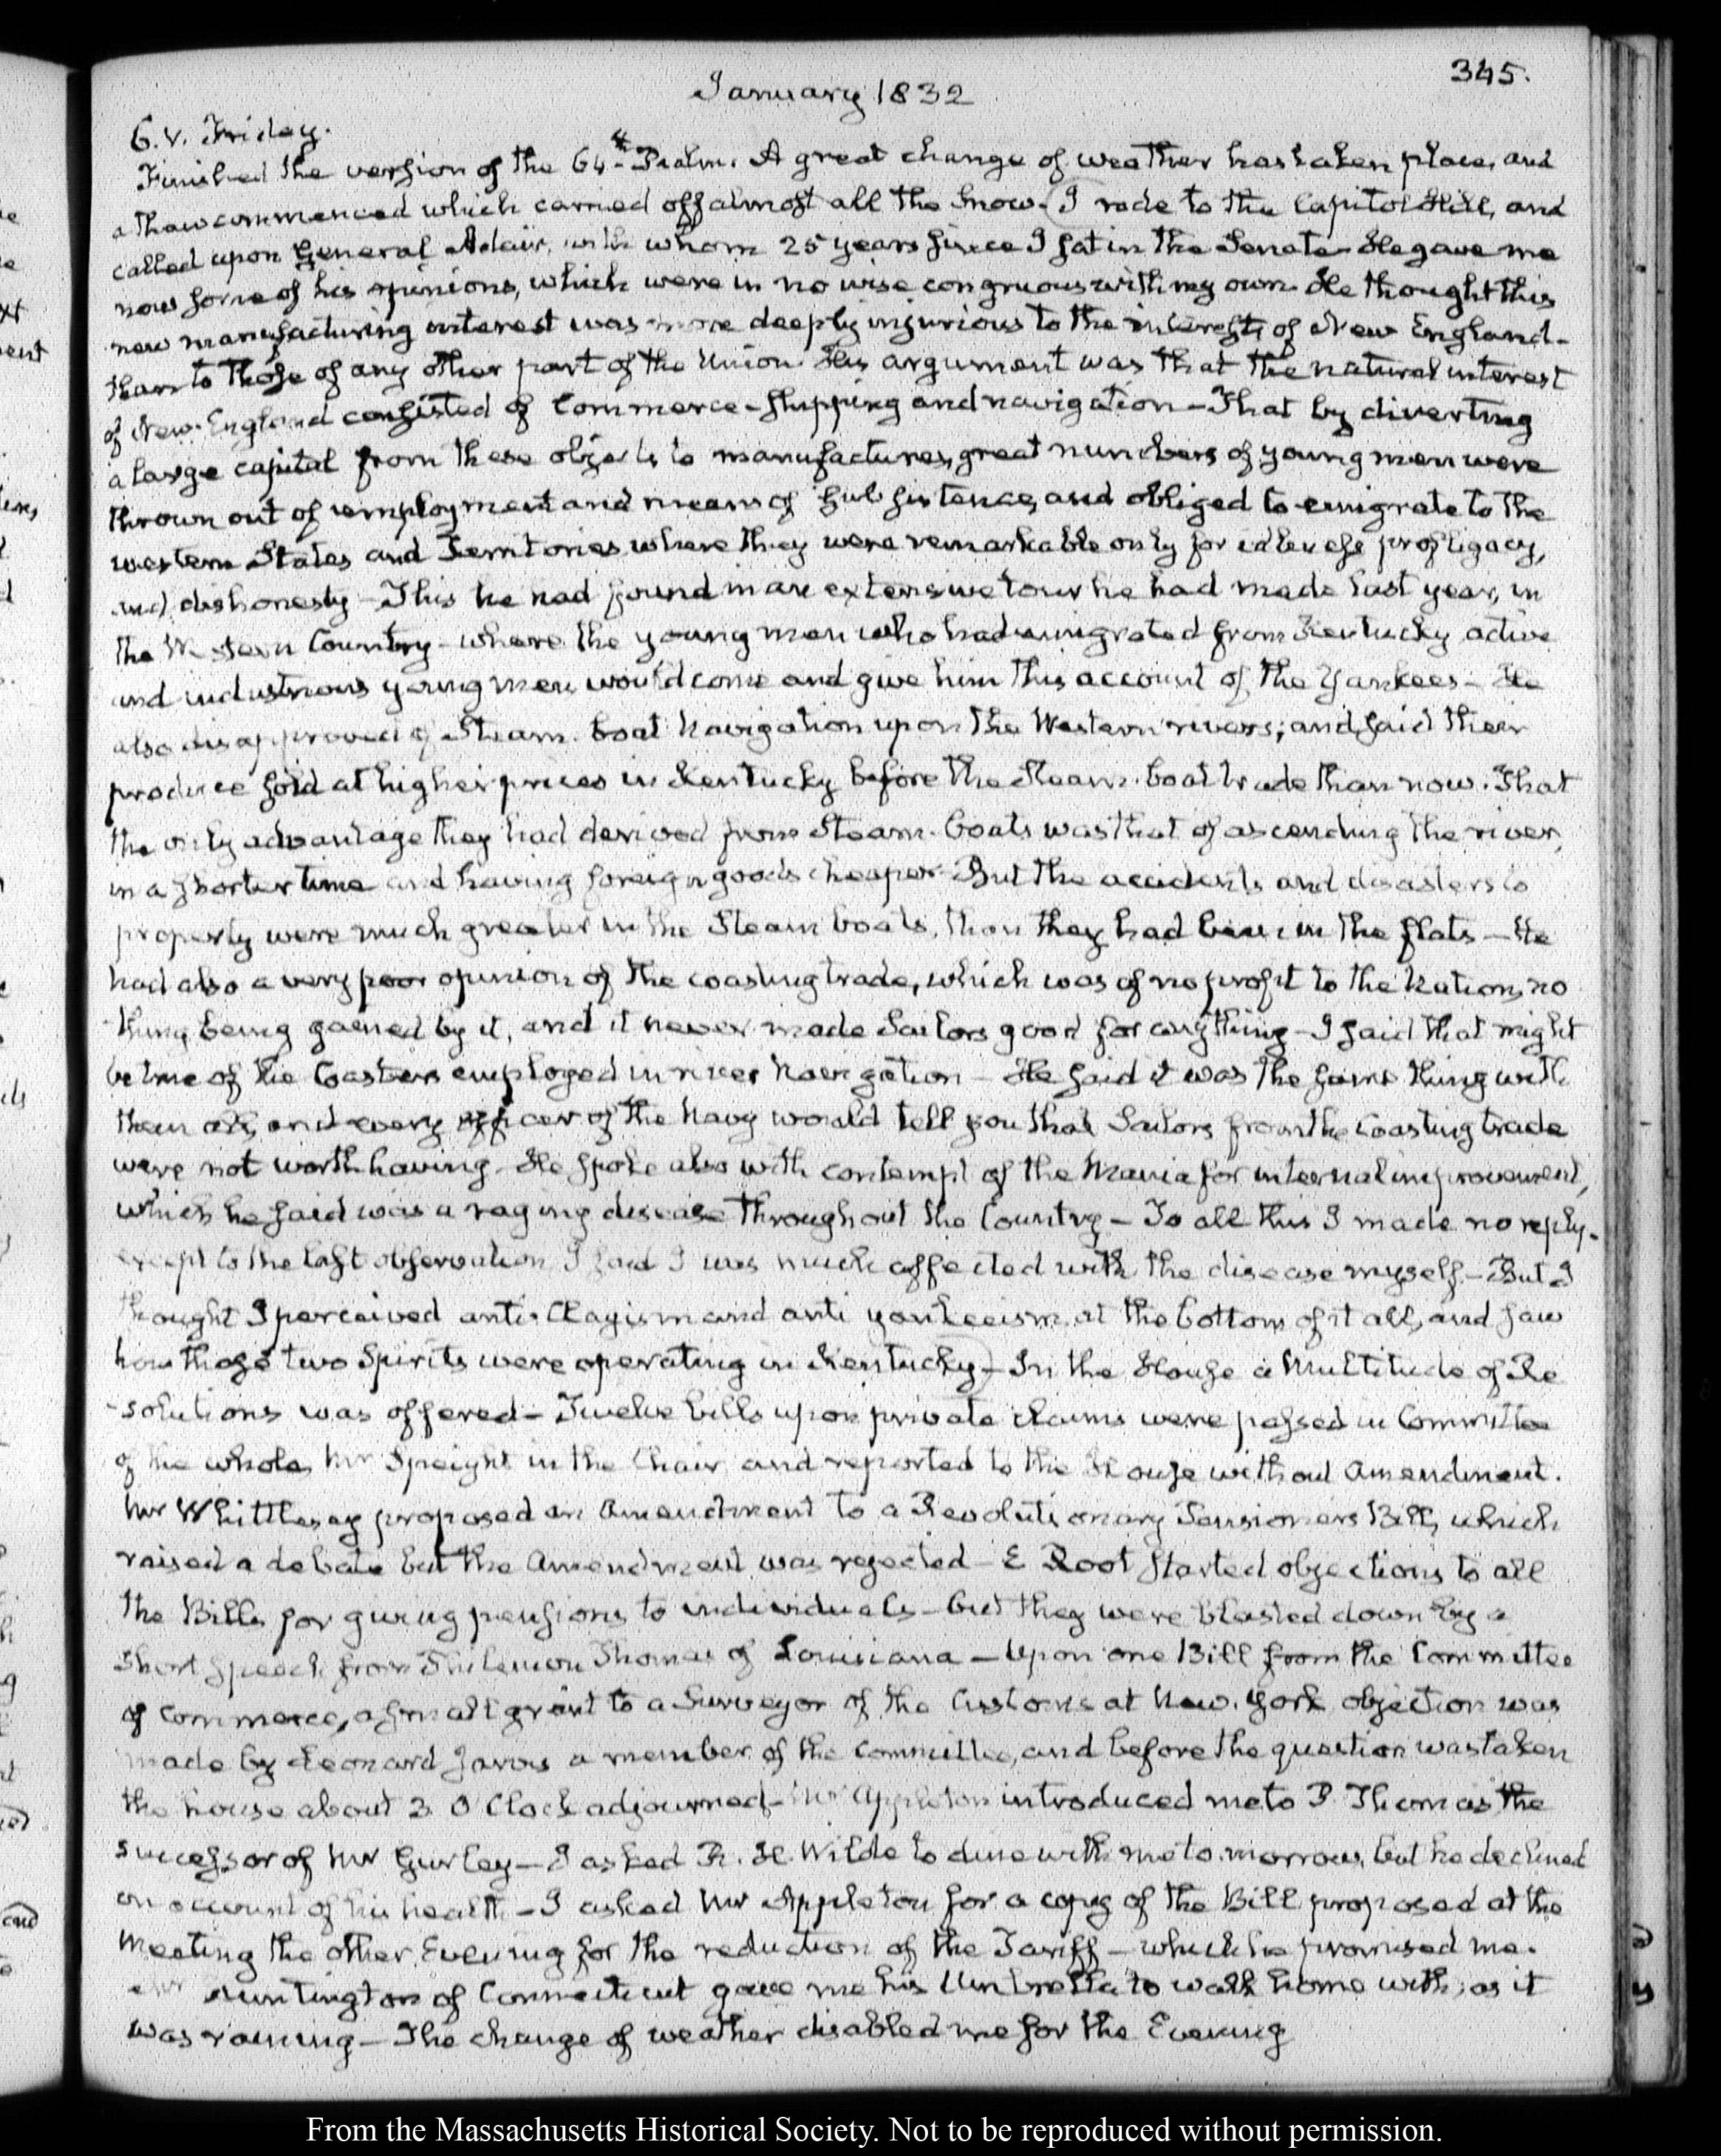 345.
January 1832
6. V. Friday.
Finished the version of the 64th Psalm. A great change of weather has taken place, and
a thaw commenced which carried off almost all the Snow. (I rode to the Capitol Hill, and
called upon General Adair, with whom 25 years since I sat in the Senate. He gave me
now some of his opinions, which were in no wise congruous with my own. He thought this
new manufacturing interest was more deeply injurious to the interests of New England-
than to those of any other part of the Union. His argument was that the natural interest
of New-England consisted of Commerce-shipping and navigation-That by diverting
a large capital from these objects to manufactures, great numbers of young men were
thrown out of employment and means of subsistence, and obliged to emigrate to the
western States and Territories where they were remarkable only for idleness profligacy,
and dishonesty-This he had found in an extensive tour he had made last year, in
the Western Country-where the young men who had emigrated from Kentucky, active
and industrious young men, would come and give him this account of the Yankees-He
also disapproved of Steam-boat Navigation upon the Western rivers; and said their
produce sold at higher prices in Kentucky before the Steam-boat trade than now. That
the only advantage they had derived from Steam-boats was that of ascending the river,
in a shorter time and having foreign goods cheaper-But the accidents and disasters to
property were much greater in the Steam boats, than they had been in the flats-He
had also a very poor opinion of the coasting trade, which was of no profit to the Nation, no
thing being gained by it, and it never made Sailors good for anything-I said that might
be true of the Coasters employed in river Navigation-He said it was the same thing with
them all, and every officer of the Navy would tell you that Sailors from the Coasting trade
were not worth having-He spoke also with contempt of the Mania for internal improvement,
which he said was a raging disease throughout the Country-To all this I made no reply-
except to the last observation I said I was much affected with the disease myself-But I
thought I perceived anti-Clayism and anti yankeeism at the bottom of it all, and saw
how those two Spirits were operating in Kentucky)-In the House a Multitude of Re
-solutions was offered-Twelve bills upon private claims were passed in Committee
of the whole, Mr Speight in the Chair, and reported to the House without Amendment.
Mr Whittlesey proposed an Amendment to a Revolutionary Pensioners Bill, which
raised a debate but the Amendment was rejected-E Root started objections to all
the Bills for giving pensions to individuals-but they were blasted down by a
short speech from Philemon Thomas of Louisiana-Upon one Bill from the Committee
of Commerce, a small grant to a Surveyor of the Customs at New-York objection was
made by Leonard Jarvis a member of the Committee, and before the question was taken
the house about 3 O'Clock adjourned-Mr Appleton introduced me to P. Thomas the
successor of Mr Gurley-I asked R. H. Wilde to dine with me to-morrow, but he declined
on account of his health-I asked Mr Appleton for a copy of the Bill proposed at the
Meeting the other Evening for the reduction of the Tariff-which he promised me.
Mr Huntington of Connecticut gave me his Umbrella to walk home with, as it
was raining-The change of weather disabled me for the Evening
From the Massachusetts Historical Society. Not to be reproduced without permission.